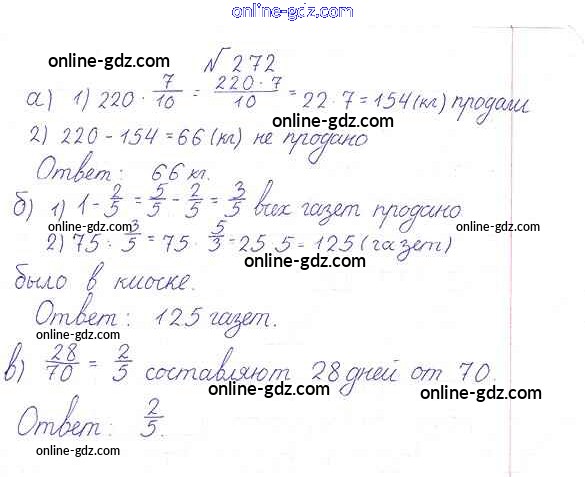 online-gdz.com
№ 272
online-gdz.com online-gdz.com
а) 1) 220 · 7/10 = 220·7/10 = 22·7 = 154 (кг) продали
online-gdz.com
2) 220 - 154 = 66 (кг) не продано
Ответ: 66 кг.
online-gdz.com
б) 1) 1 - 2/5 = 5/5 - 2/5 = 3/5 всех газет продано
online-gdz.com online-gdz.com
2) 75 : 3/5 = 75 · 5/3 = 25·5 = 125 (газет)
online-gdz.com
было в киоске.
online-gdz.com
Ответ: 125 газет.
online-gdz.com
в) 28/70 = 2/5 составляют 28 дней от 70.
online-gdz.com
Ответ: 2/5.
online-gdz.com
online-gdz.com